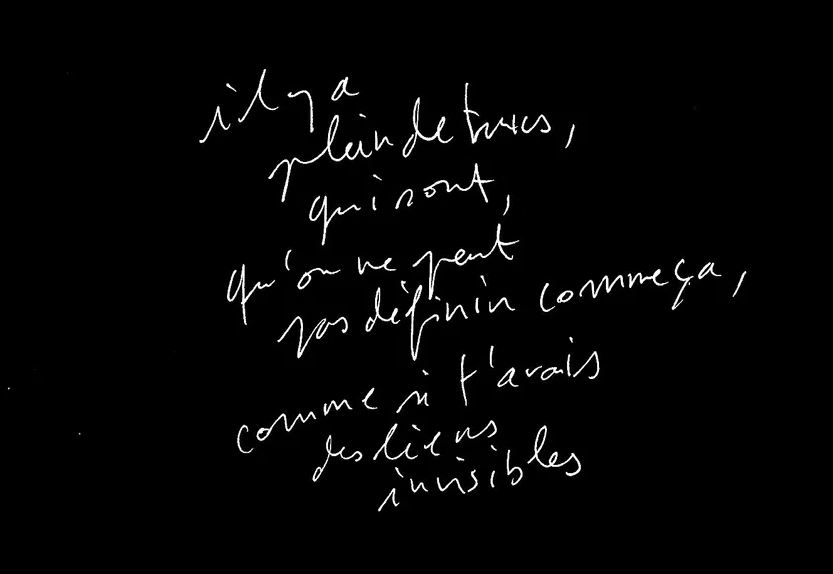 il y a
plein de trucs,
qui sont,
qu'on ne peut
pas définir comme ça,
comme si t'avais
des liens
invisibles